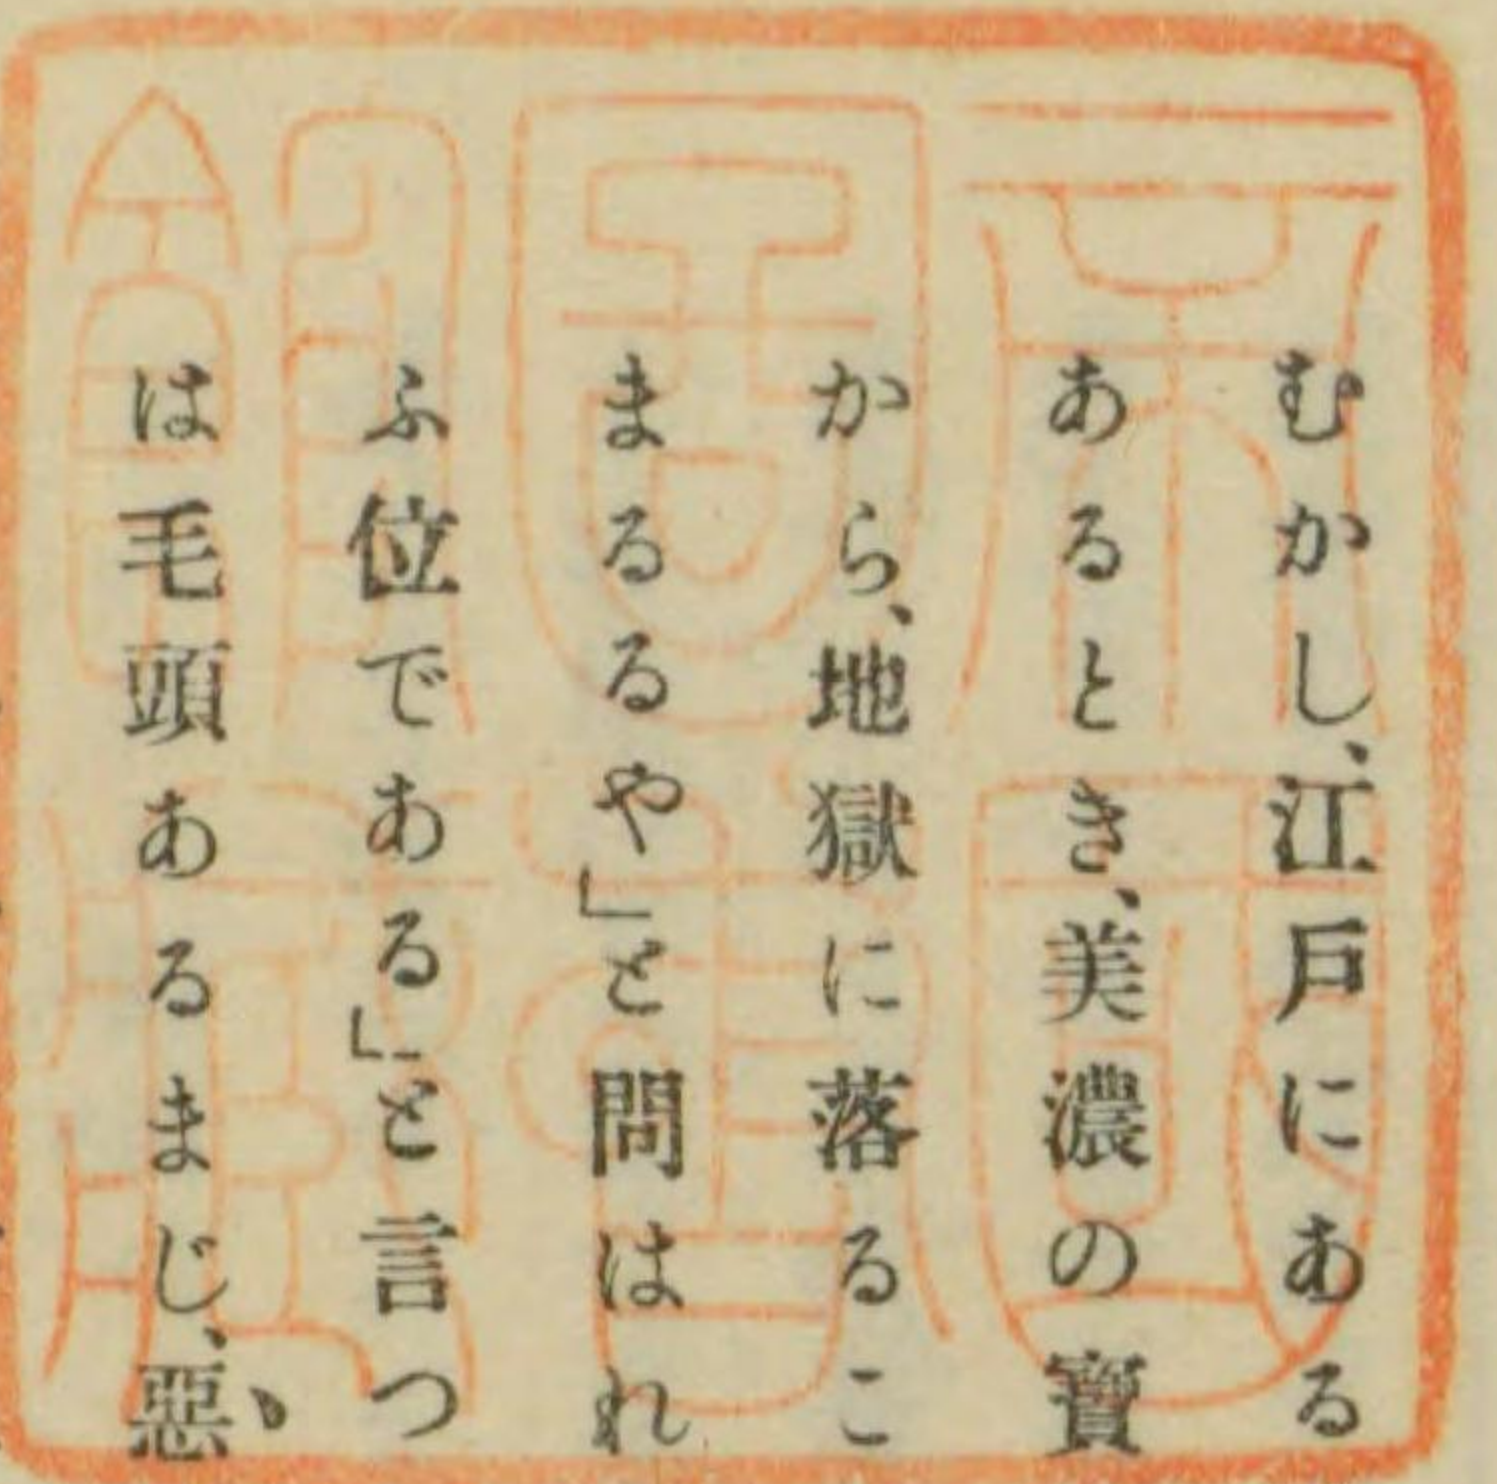 むかし、江戶にある
あるとき、美濃の寶
から、地獄に落るこ
まるるや」と問はれ
ふ位である」と言つ
は毛頭あるまじ、惡